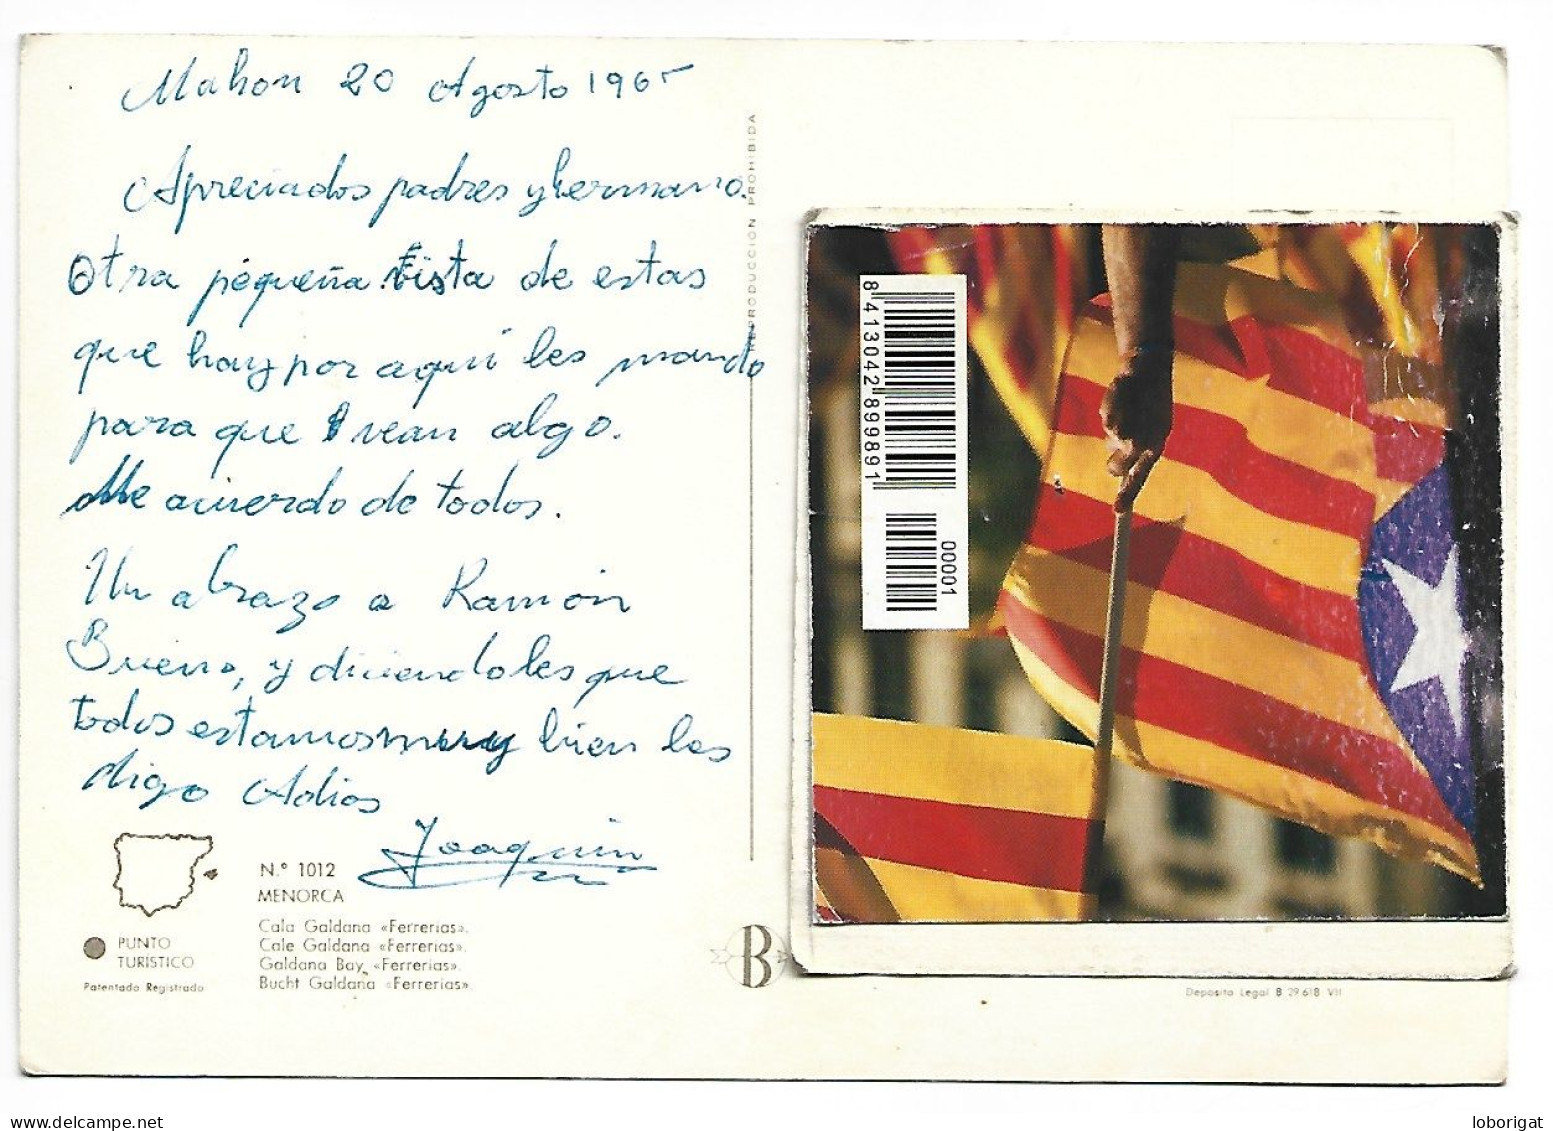 Mahon 20 Agosto 1965
Apreciados padres y hermano.
Otra pequeña vista de estas
que hay por aqui les mando
para que vean algo.
Me acuerdo de todos.
Un abrazo a Ramón
Bueno, y diciendoles que
todos estamos muy bien les
digo Adios
Joaquin
N.º 1012
MENORCA
Cala Galdana «Ferrerias».
Cale Galdana «Ferrerias».
Galdana Bay «Ferrerias».
Bucht Galdana «Ferrerias»
PUNTO
TURISTICO
Patentado Registrado
REPRODUCCION PROHIBIDA
B
8 413042 899891
00001
Deposito Legal B 29.618 VII
loborigat